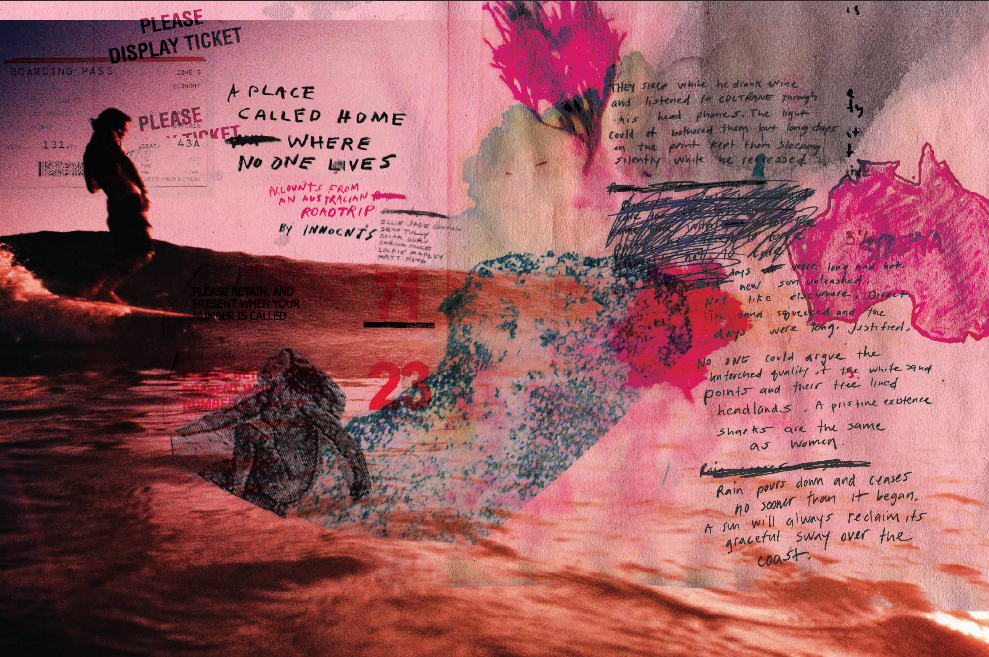 PLEASE
DISPLAY TICKET
BOARDING PASS
ZONE 5
ECONOMY
PLEASE
TICKET
131.
SEAT:
43A
A PLACE
CALLED HOME
WHERE
NO ONE LIVES
ACCOUNTS FROM
AN AUSTRALIAN
ROADTRIP
BY INNOCNTS
ELLIE JADE
SEAN TULLY
LOCKIE MANLEY
MATT KING
PLEASE RETAIN, AND
PRESENT WHEN YOUR
NUMBER IS CALLED
71
23
is
THEY sleep while he drank wine
and listened to COLTRANE through
his head phones. The light
could of bothered them but long days
on the point kept them sleeping
silently while he regressed.
days were long and hot.
new sun unleashed.
Not like elsewhere. Direct
sand squeaked and the
days were long. Justified.
No ONE could argue the
untorched quality of the white sand
points and their tree lined
headlands. A pristine existence
sharks are the same
as women.
Rain pours down and ceases
no sooner than it began.
A sun will always reclaim its
graceful sway over the
coast.